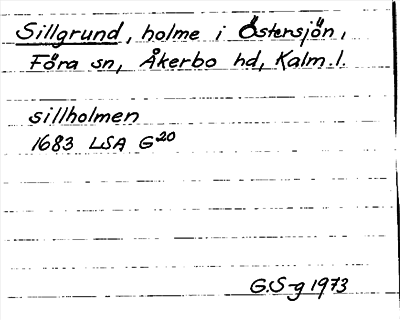 Sillgrund, holme i Östersjön,
Föra sn, Åkerbo hd, Kalm. l.
sillholmen
1683 LSA G20
G.S-g 1973